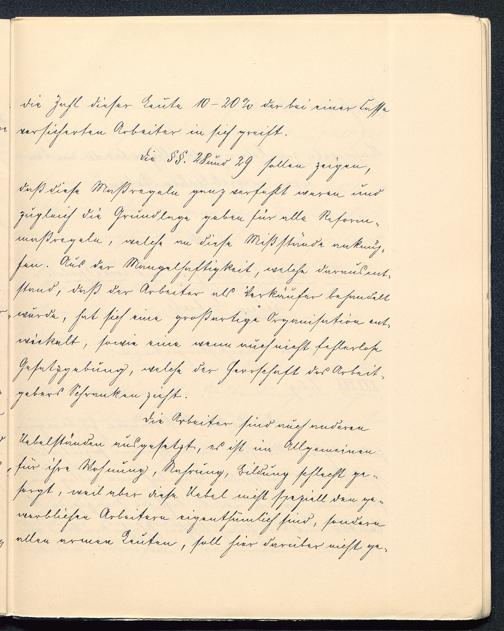 die Zahl dieser Leute 10–20% der bei einer Casse
versicherten Arbeiter in sich greift.
Die §§. 28 und 29 sollen zeigen,
daß diese Maßregeln ganz verfehlt waren und
zugleich die Grundlage geben für alle Reform-
maßregeln, welche an diese Mißstände anknüp-
fen. Aus der Mangelhaftigkeit, welche daraus ent-
stand, daß der Arbeiter als Verkäufer behandelt
wurde, hat sich eine großartige Organisation ent-
wickelt, sowie eine wenn auch nicht fehlerlose
Gesetzgebung, welche der Herrschaft des Arbeit-
gebers Schranken zieht.
Die Arbeiter sind auch anderen
Uebelständen ausgesetzt, es ist im Allgemeinen
für ihre Wohnung, Nahrung, Bildung schlecht ge-
sorgt, weil aber diese Uebel nicht speziell den ge-
werblichen Arbeitern eigenthümlich sind, sondern
allen armen Leuten, soll hier darüber nicht ge-